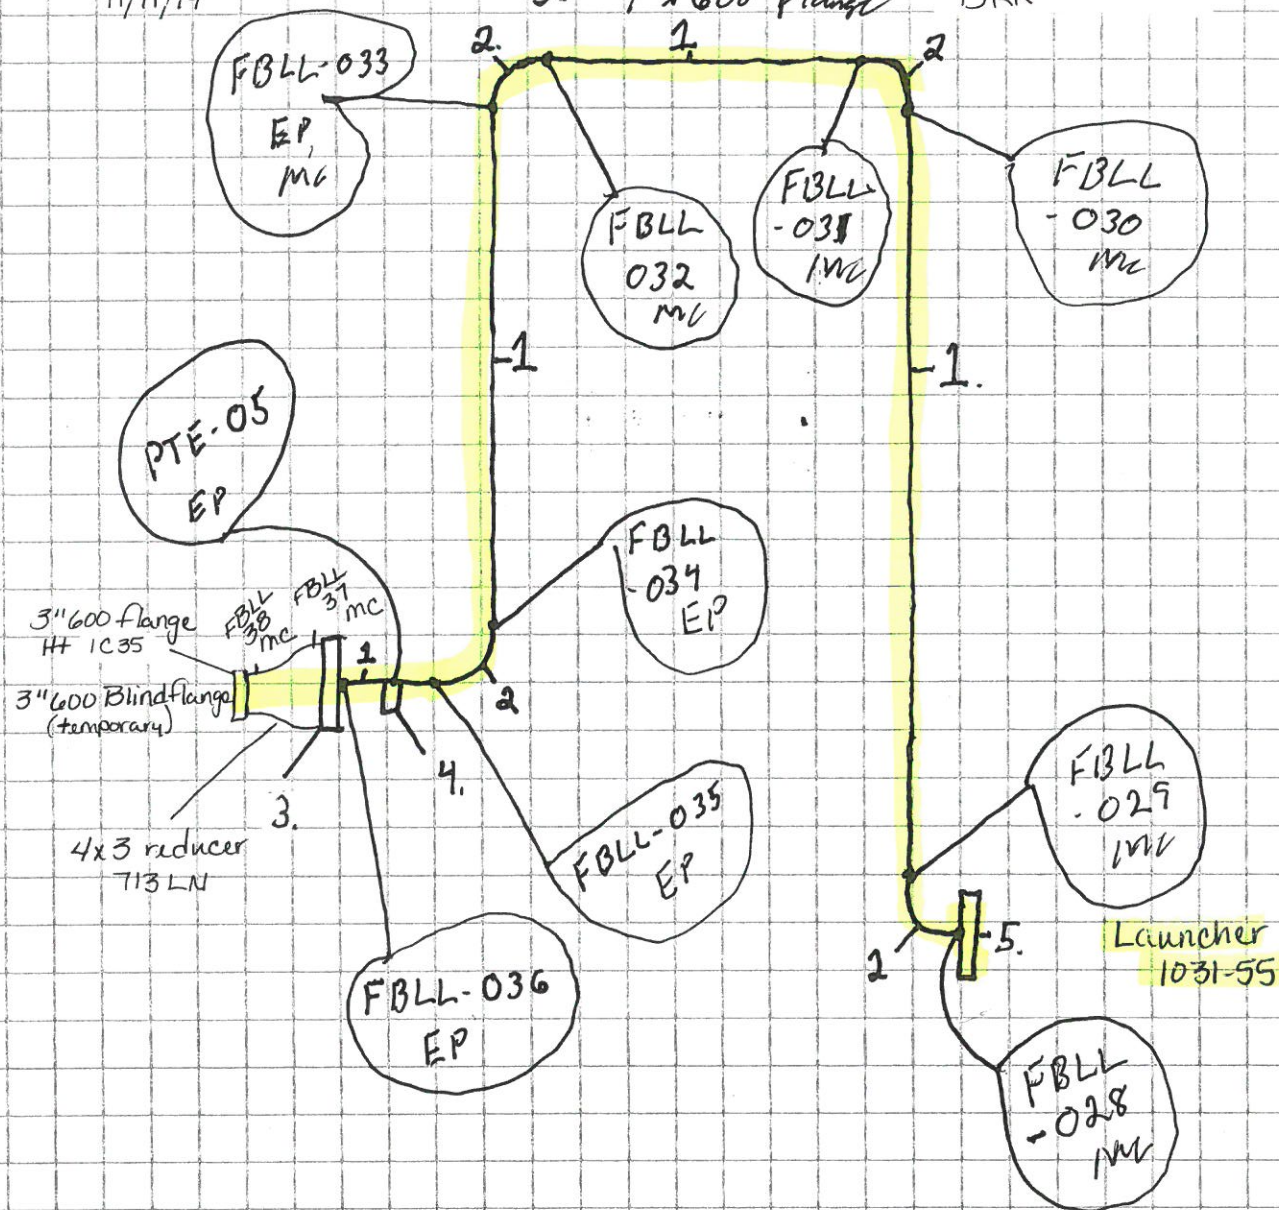 x 600 flange
FBLL-033
EP,
MC
2.
1
2
FBLL
032
MC
FBLL
-031
MC
FBLL
-030
MC
1
1.
PTE-05
EP
FBLL
-034
EP
3"600 flange
Ht 1C35
FBLL
38
MC
FBLL
37
MC
1
3"600 Blind flange
(temporary)
2
3.
4.
4x3 reducer
713LN
FBLL-035
EP
FBLL
-029
MC
FBLL-036
EP
2
5.
Launcher
1031-55
FBLL
-028
MC